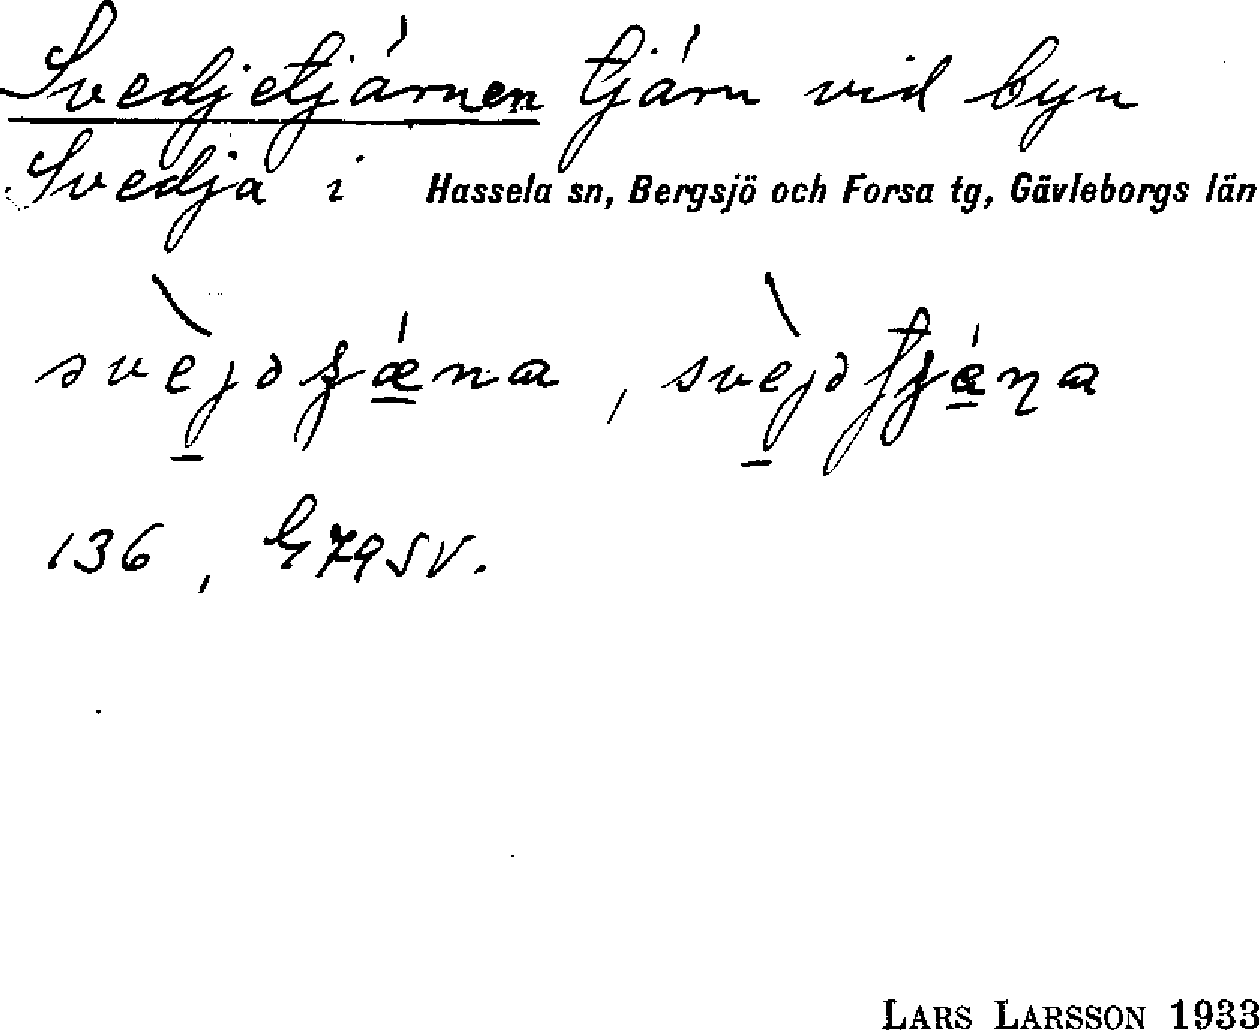 Svedjetjärnen tjärn vid byn
Svedja i Hassela sn, Bergsjö och Forsa tg, Gävleborgs län
136, G79SV.
LARS LARSSON 1933